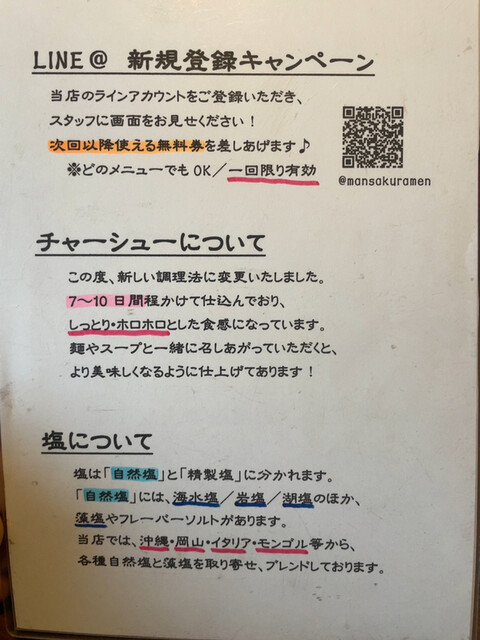 LINE＠ 新規登録キャンペーン
当店のラインアカウントをご登録いただき、
スタッフに画面をお見せください！
次回以降使える無料券を差しあげます♪
※どのメニューでもOK／一回限り有効
@mansakuramen
チャーシューについて
この度、新しい調理法に変更いたしました。
7〜10日間程かけて仕込んでおり、
しっとり・ホロホロとした食感になっています。
麺やスープと一緒に召しあがっていただくと、
より美味しくなるように仕上げてあります！
塩について
塩は「自然塩」と「精製塩」に分かれます。
「自然塩」には、海水塩／岩塩／湖塩のほか、
藻塩やフレーバーソルトがあります。
当店では、沖縄・岡山・イタリア・モンゴル等から、
各種自然塩と藻塩を取り寄せ、ブレンドしております。